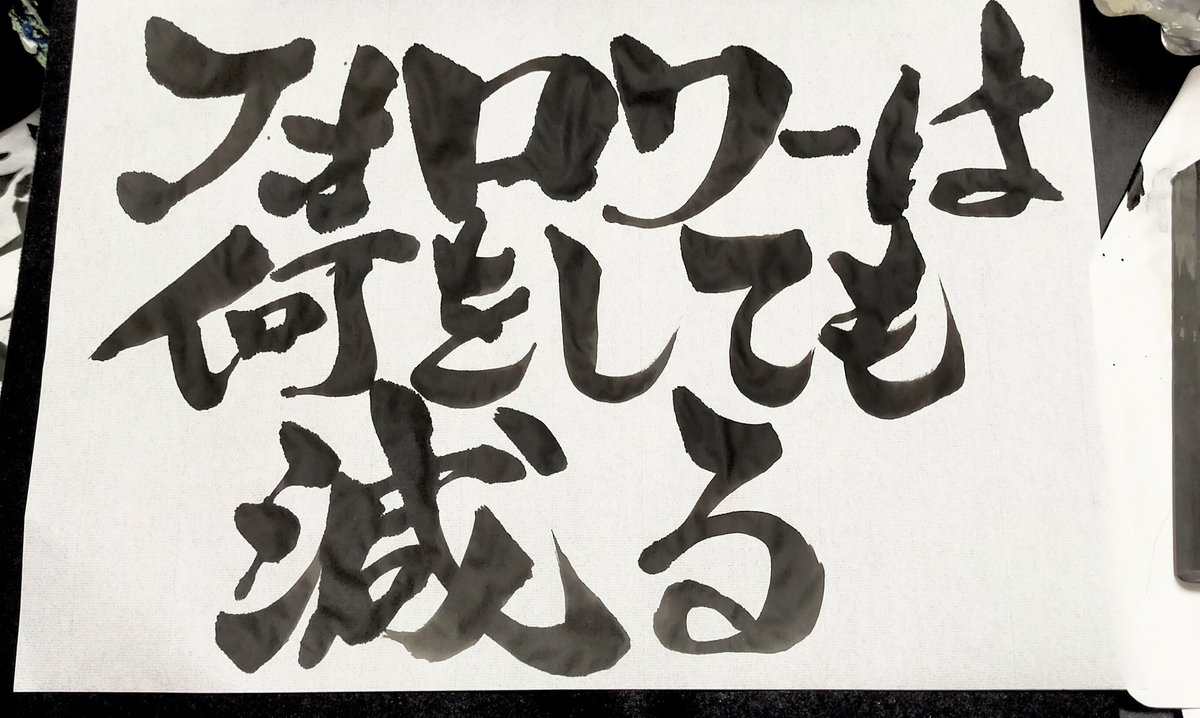 フォロワーは
何としても
減る